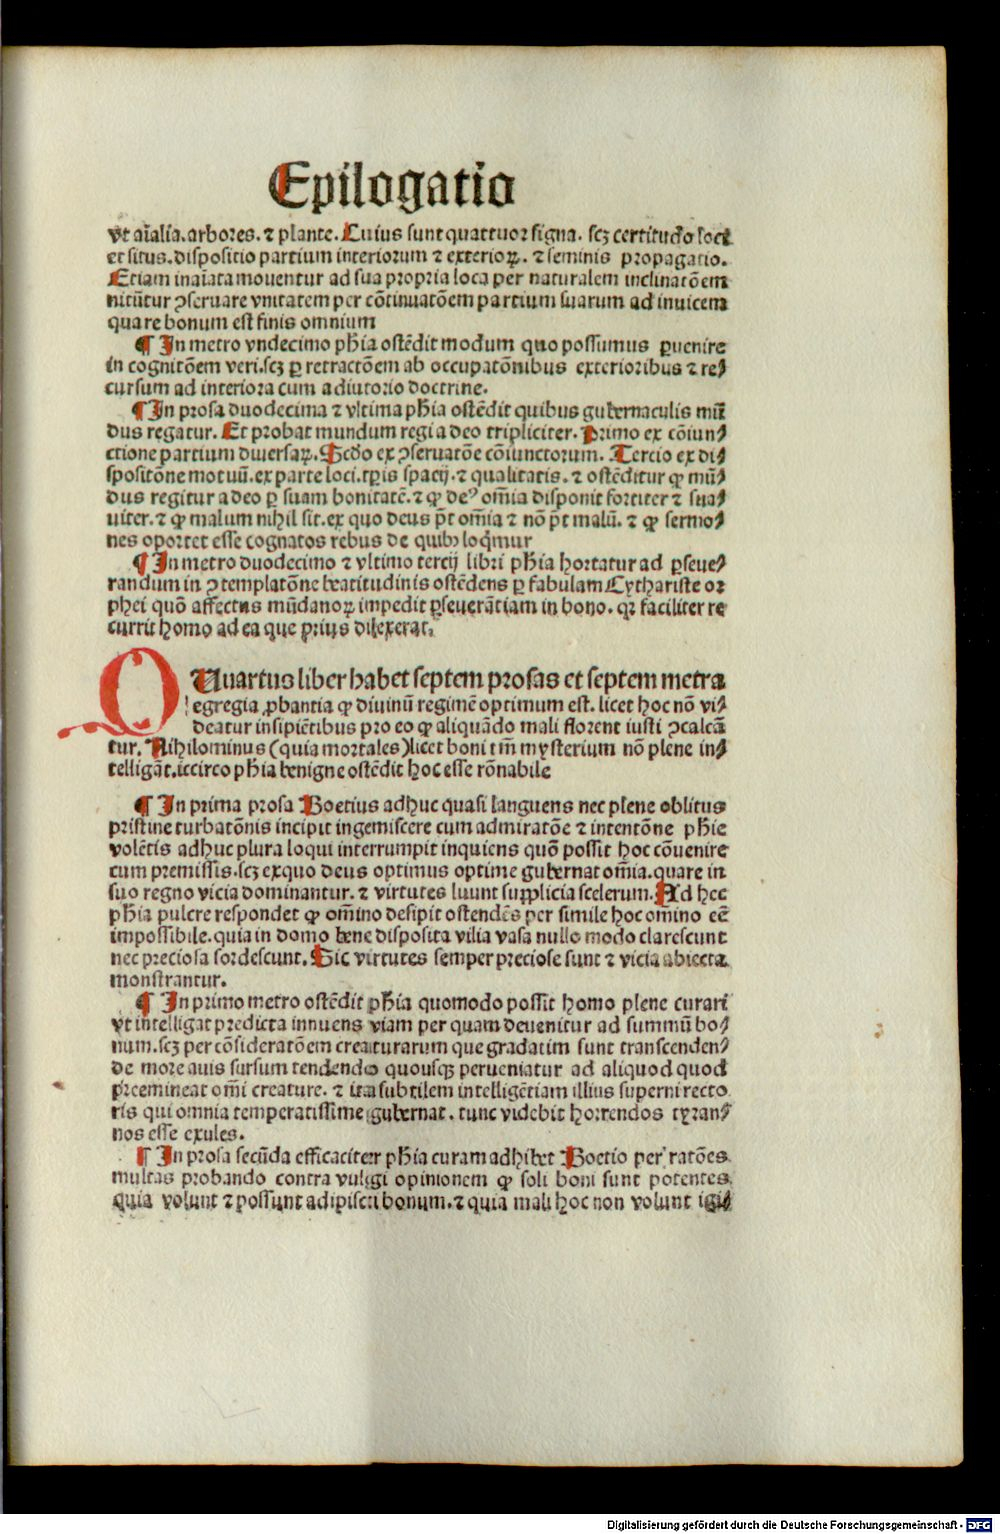 Epilogatio
vt aĩalia.arbores.⁊ plante.Cuius sunt quattuor signa. scꝫ certitudo loci
et situs.dispositio partium interiorum ⁊ exterioꝝ. ⁊ seminis propagatio.
Etiam inaĩata mouentur ad sua propria loca per naturalem inclinatõem
nitũtur ꝯseruare vnitatem per cõtinuatõem partium suarum ad inuicem
quare bonum est finis omnium
¶ In metro vndecimo ph̃ia ostẽdit modum quo possumus ꝑuenire
in cognitõem veri.scꝫ ꝑ retractõem ab occupatõnibus exterioribus ⁊ re⸗
cursum ad interiora cum adiutorio doctrine.
¶ In prosa duodecima ⁊ vltima ph̃ia ostẽdit quibus gubernaculis mũ
dus regatur. Et probat mundum regi a deo tripliciter. Primo ex cõiun⸗
ctione partium diuersaꝝ. Scd̃o ex ꝯseruatõe cõiunctorum. Tercio ex di⸗
spositõne motuũ.ex parte loci.tꝑis spacij.⁊ qualitatis. ⁊ ostẽditur ꝙ mũ⸗
dus regitur a deo ꝑ suam bonitatẽ.⁊ ꝙ deꝰ om̃ia disponit fortiter ⁊ sua⸗
uiter.⁊ ꝙ malum nihil sit.ex quo deus p̃t om̃ia ⁊ nõ p̃t malũ. ⁊ ꝙ sermo⸗
nes oportet esse cognatos rebus de quibꝫ loq̃mur
¶ In metro duodecimo ⁊ vltimo tercij libri ph̃ia hortatur ad ꝑseue⸗
randum in ꝯtemplatõne beatitudinis ostẽdens ꝑ fabulam Cythariste or
phei quõ affectus mũdanoꝝ impedit ꝑseuerãtiam in bono. qꝛ faciliter re
currit homo ad ea que prius dilexerat.
QUartus liber habet septem prosas et septem metra
egregia ꝓbantia ꝙ diuinũ regimẽ optimum est. licet hoc nõ vi⸗
deatur insipiẽtibus pro eo ꝙ aliquãdo mali florent iusti ꝯcalcã
tur. Nihilominus (quia mortales)licet boni tm̃ mysterium nõ plene in⸗
telligãt.iccirco ph̃ia benigne ostẽdit hoc esse rõnabile
¶ In prima prosa Boetius adhuc quasi languens nec plene oblitus
pristine turbatõnis incipit ingemiscere cum admiratõe ⁊ intentõne ph̃ie
volẽtis adhuc plura loqui interrumpit inquiens quõ possit hoc cõuenire
cum premissis.scꝫ exquo deus optimus optime gubernat om̃ia.quare in
suo regno vicia dominantur. ⁊ virtutes luunt supplicia scelerum. Ad hec
ph̃ia pulcre respondet ꝙ om̃ino desipit ostendẽs per simile hoc omino eẽ
impossibile.quia in domo bene disposita vilia vasa nullo modo clarescunt
nec preciosa sordescunt. Sic virtutes semper preciose sunt ⁊ vicia abiecta
monstrantur.
¶ In primo metro ostẽdit ph̃ia quomodo possit homo plene curari
vt intelligat predicta innuens viam per quam deuenitur ad summũ bo⸗
num.scꝫ per cõsideratõem creaturarum que gradatim sunt transcenden⸗
de more auis sursum tendendo quousqꝫ perueniatur ad aliquod quod
preemineat om̃i creature. ⁊ ita subtilem intelligẽtiam illius superni recto
ris qui omnia temperatissime gubernat. tunc videbit horrendos tyran⸗
nos esse exules.
¶ In prosa secũda efficaciter ph̃ia curam adhibet Boetio per ratões
multas probando contra vulgi opinionem ꝙ soli boni sunt potentes
quia volunt ⁊ possunt adipisci bonum.⁊ quia mali hoc non volunt igit̃
Digitalisierung gefördert durch die Deutsche Forschungsgemeinschaft - DFG